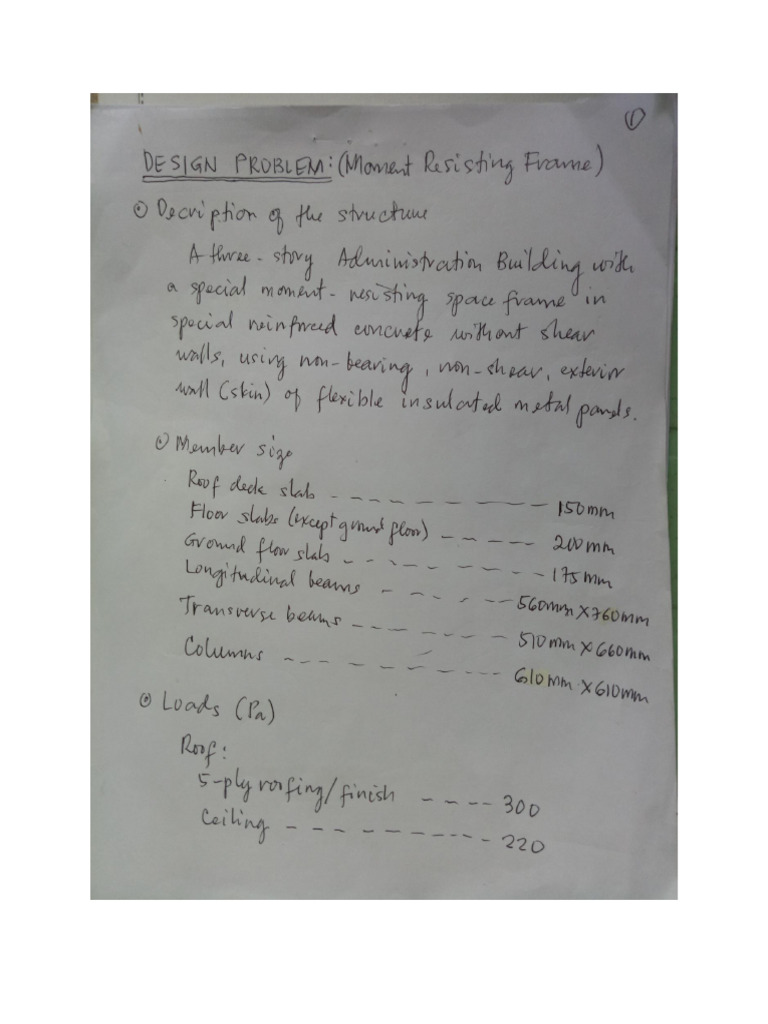 ①
DESIGN PROBLEM: (Moment Resisting Frame)
⊙ Decription of the structure
A three-story Administration Building with
a special moment-resisting space frame in
special reinforced concrete without shear
walls, using non-bearing, non-shear, exterior
wall (skin) of flexible insulated metal panels.
⊙ Member size
Roof deck slab - - - - - - - - 150mm
Floor slabs (except ground floor) - - - - - 200mm
Ground flow slab - - - - - - - - 175mm
Longitudinal beams - - - - - - 560mm X 760mm
Transverse beams - - - - - - - 510mm X 660mm
Columns - - - - - - - - - - 610mm X 610mm
⊙ Loads (Pa)
Roof:
5-ply roofing/finish - - - - 300
Ceiling - - - - - - - - - - 220